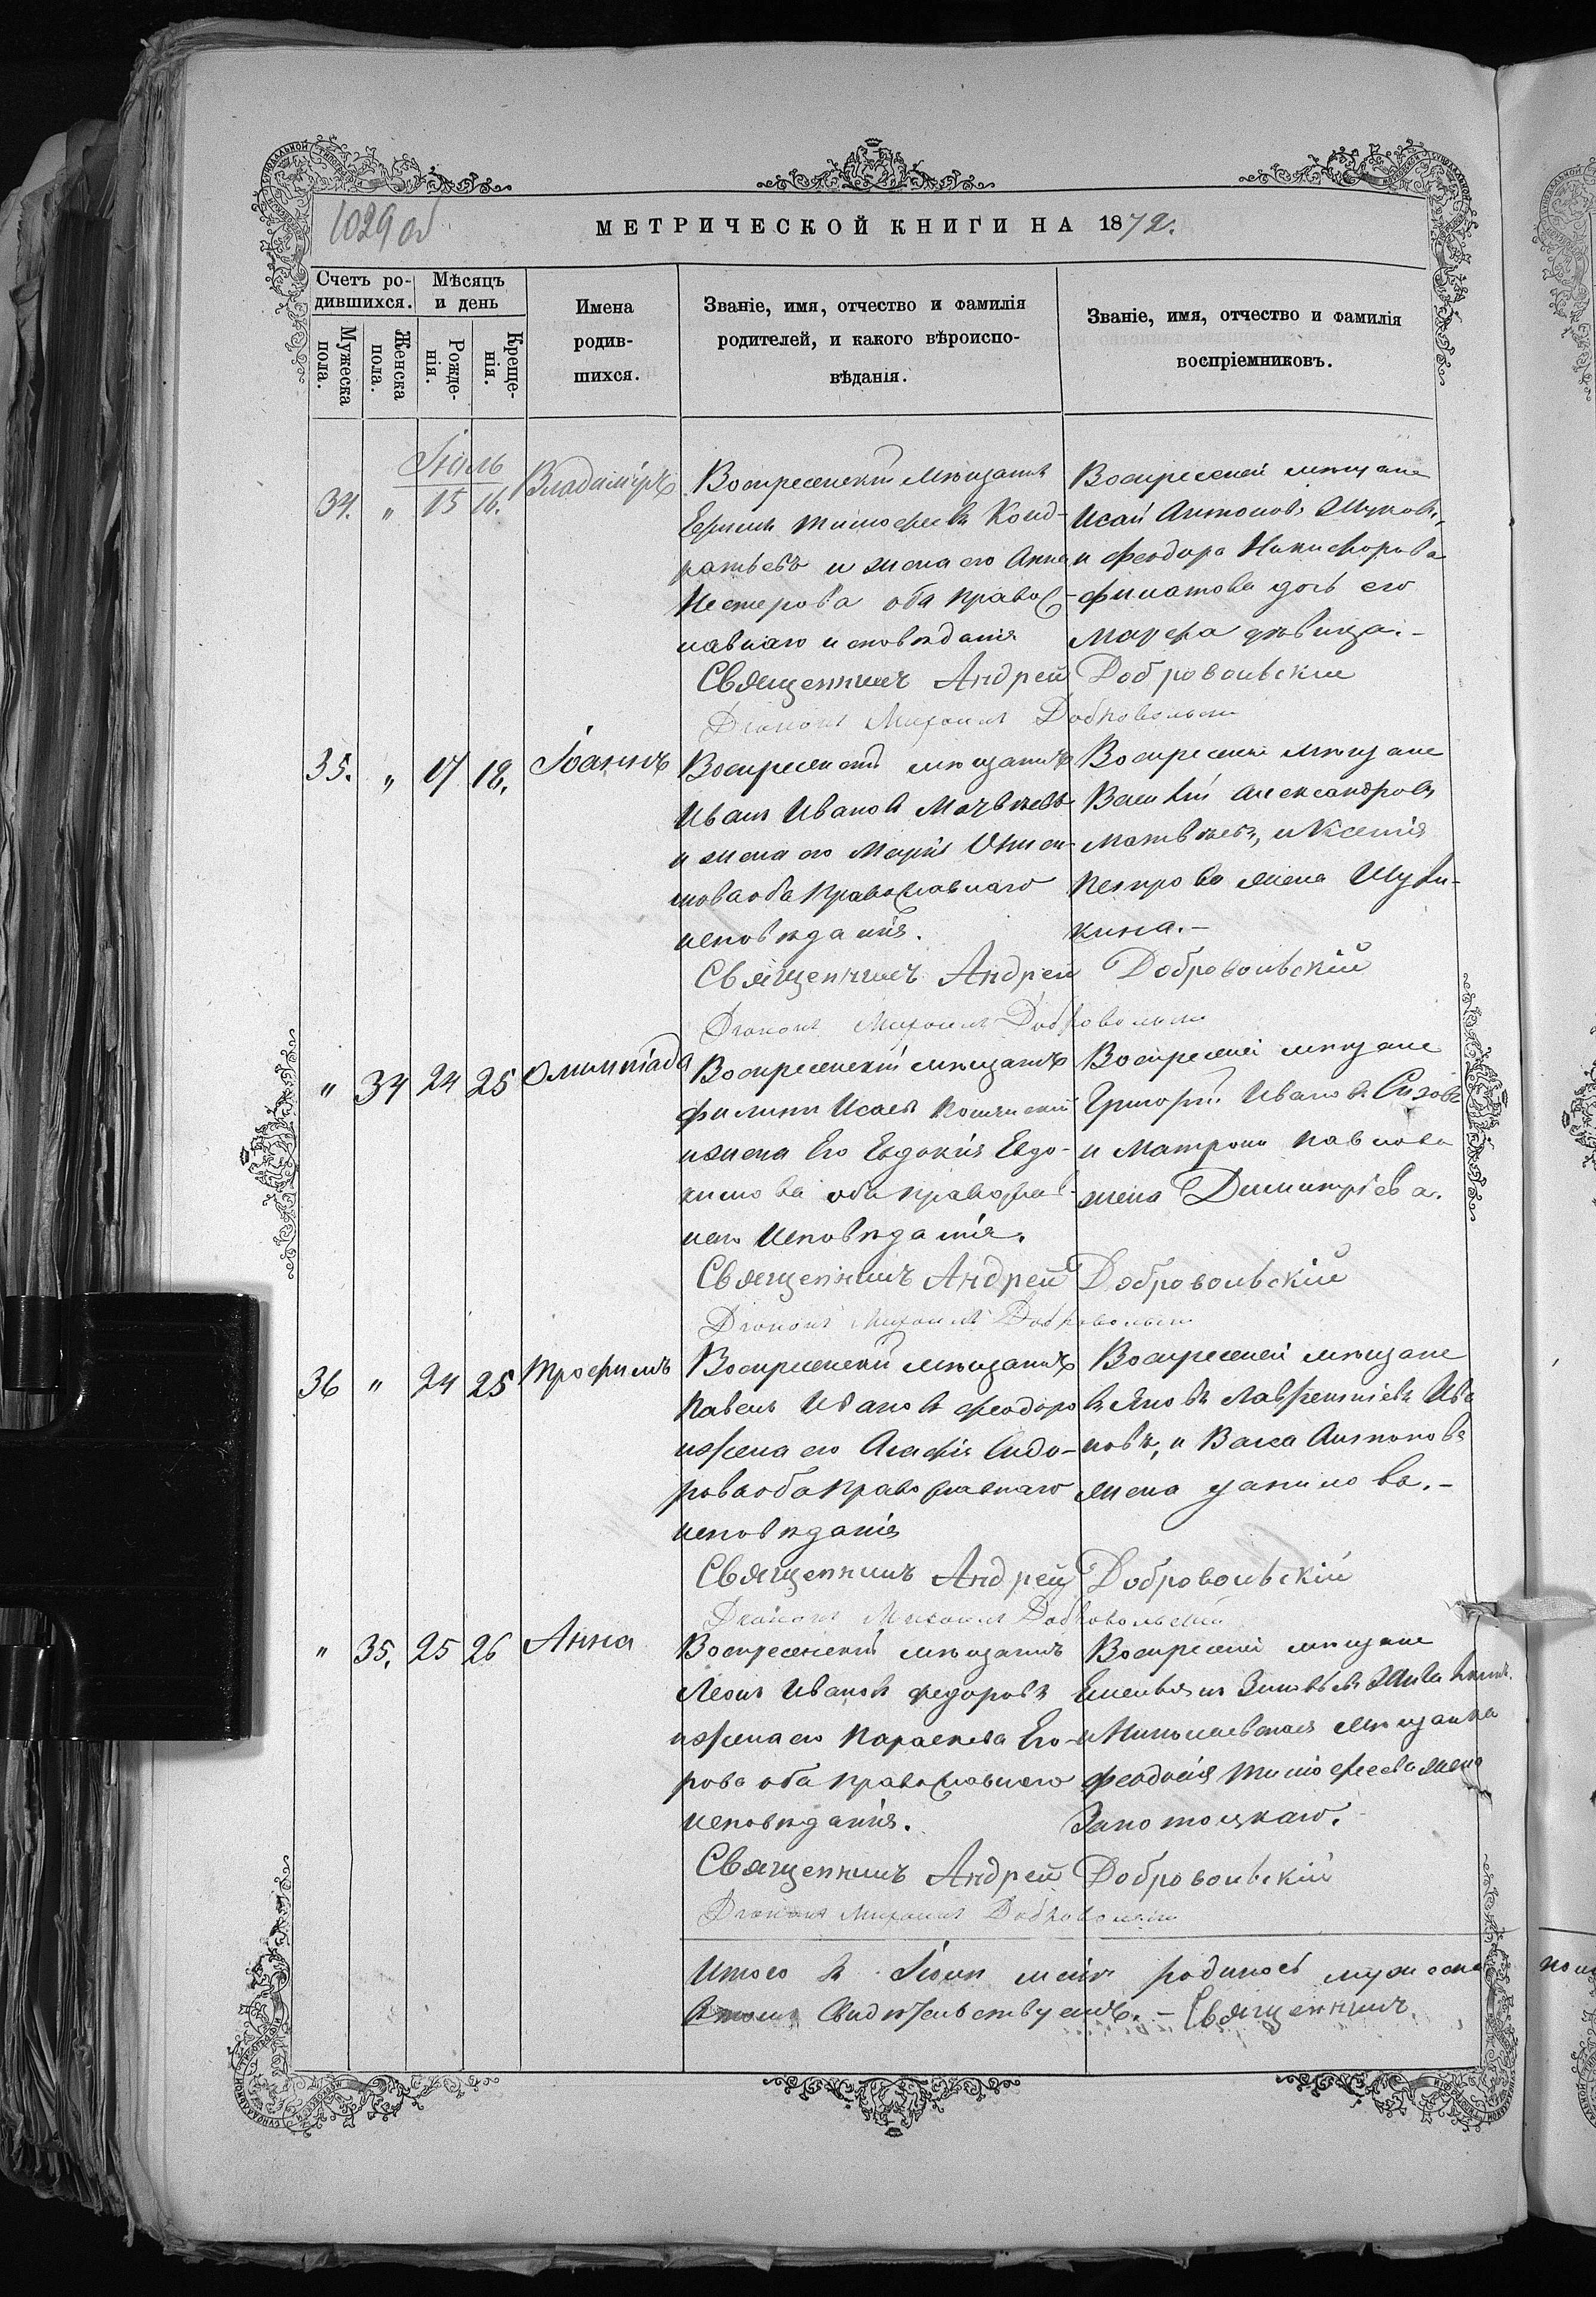 1029 об
МЕТРИЧЕСКОЙ КНИГИ НА 1872.
Счетъ ро-
дившихся.
Мужеска
пола.
Женска
пола.
Мѣсяцъ
и день
Рожде-
нія.
Креще-
нія.
Имена
родив-
шихся.
Званіе, имя, отчество и фамилія
родителей, и какого вѣроиспо-
вѣданія.
Званіе, имя, отчество и фамилія
воспріемниковъ.
Іюль
34. " 15 16. Владиміръ
Воскресенскій мѣщанинъ
Ефимъ Тимофеевъ Конд-
ратьевъ и жена его Анна
Нестерова оба правос-
лавнаго исповѣданія
Воскресенскій мѣщане
Исай Антоновъ
и Феодора Никифорова
Филатова дочь его
Марфа дѣвица.-
Священникъ Андрей Добровольскій
Діаконъ Михаилъ Добровольскій
35. " 17 18. Іоаннъ
Воскресенскій мѣщанинъ
Иванъ Ивановъ Матвѣевъ
и жена его Марія
оба православнаго
исповѣданія.
Воскресенскіе мѣщане
Василій Александровъ
Матвѣевъ, и Ксенія
Петрова жена
кина.-
Священникъ Андрей Добровольскій
Діаконъ Михаилъ Добровольскій
" 34 24 25 Олимпіада
Воскресенскій мѣщанинъ
Филипъ Исаевъ
и жена Его Евдокія Евдо-
кимова оба православ-
наго Исповѣданія.
Воскресенскіе мѣщане
Григорій Ивановъ Сизовъ
и Матрона Павлова
жена Димитріева.
Священникъ Андрей Добровольскій
Діаконъ Михаилъ Добровольскій
36 " 24 25 Трофимъ
Воскресенскій мѣщанинъ
Павелъ Ивановъ Феодоро
и жена его Агафія Сидо-
рова оба православнаго
исповѣданія
Воскресенскій мѣщане
въ Яковъ Лаврентіевъ Ива
новъ, и Васса Антонова
жена Данилова.-
Священникъ Андрей Добровольскій
Діаконъ Михаилъ Добровольскій
" 35. 25 26 Анна
Воскресенскій мѣщанинъ
Леонъ Ивановъ Федоровъ
и жена его Параскева Его-
рова оба православнаго
исповѣданія.
Воскресенскій мѣщане
Емельянъ Зиновьевъ
и Николаевская мѣщанка
Феодосія Тимофеева жена
Запотоцкаго.
Священникъ Андрей Добровольскій
Діаконъ Михаилъ Добровольскій
Итого въ Іюлѣ родилось мужеска
Свидѣтельствуемъ.- Священникъ